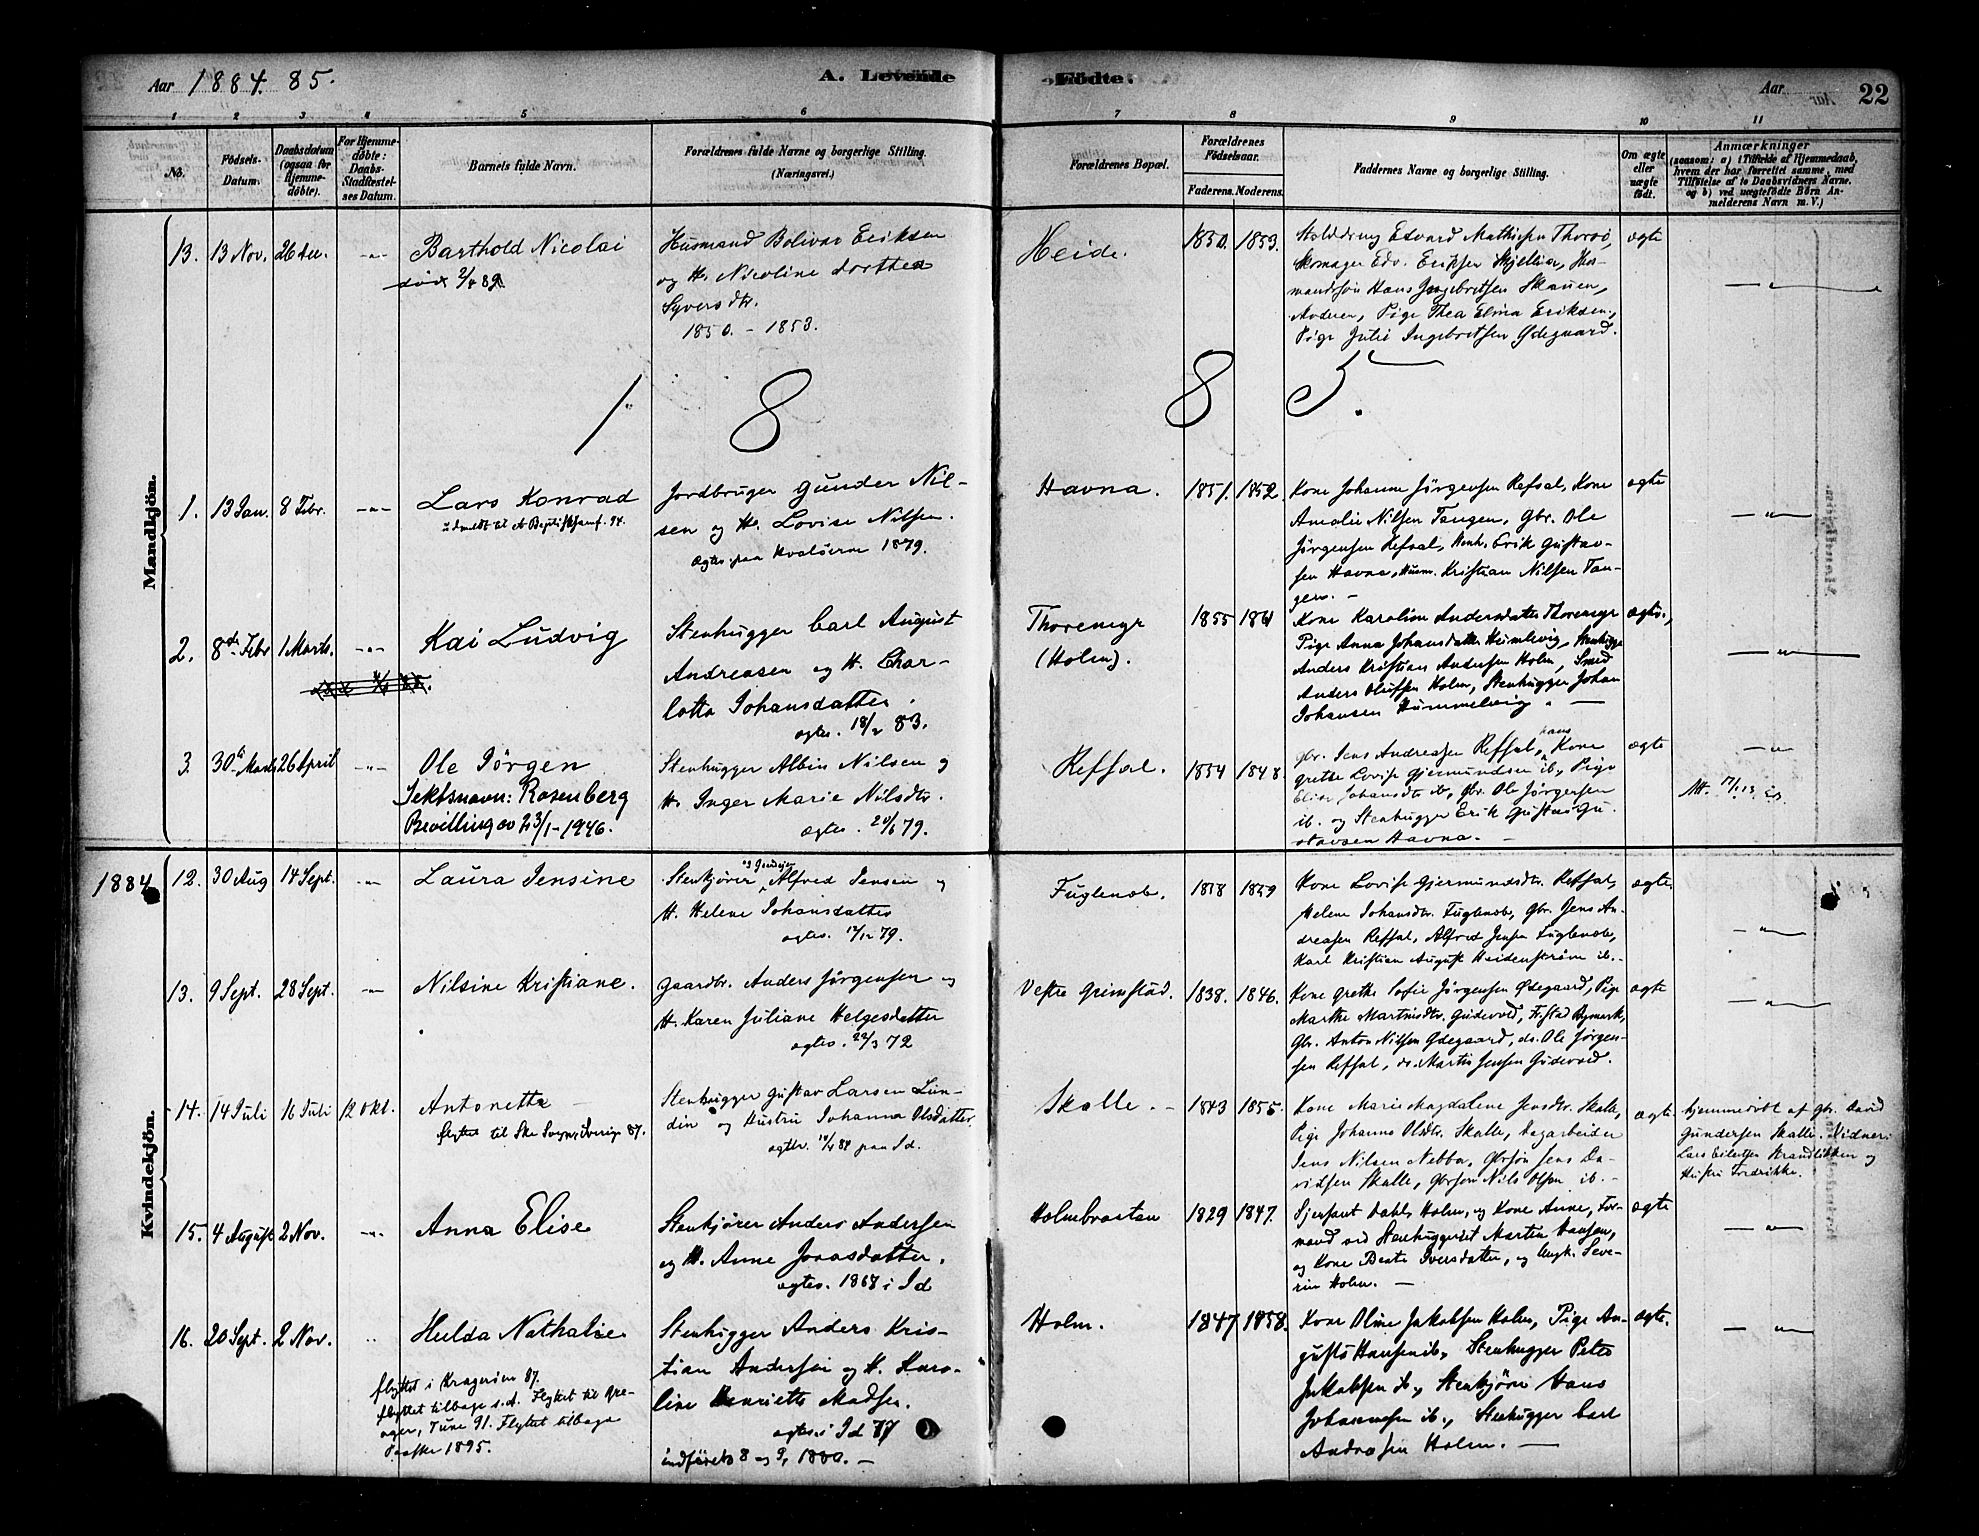 Aar 1884. 85.
A. Levende Födte.
Aar
22
1 2 3 4 5 6 7 8 9 10 11
No.
Födsels-Datum.
Daabsdatum (ogsaa for Hjemmedöbte).
For Hjemmedöbte: Daabs-Stadfæstelses Datum.
Barnets fulde Navn.
Forældrenes fulde Navne og borgerlige Stilling.
(Næringsvei.)
Forældrenes Bopæl.
Forældrenes Födselsaar.
Faderens. Moderens.
Faddernes Navne og borgerlige Stilling.
Om ægte eller uægte födt.
Anmærkninger
(saasom: a) i Tilfælde af Hjemmedaab, hvem der har forrettet samme, med Tilföielse af to Daabsvidners Navne, og b) ved uægtefödte Börn Anmelderens Navn m. V.)
Mandkjön.
13. 13 Nov. 26 Dec. -"- Barthold Nicolai
død 2/4 89
Husmand Bolivar Eriksen
og H. Nicoline Dorthea
Syversdtr.
1850. - 1853.
Heide. 1850. 1853.
Edvard Mathisen Thorsø,
Skomager Edv. Eriksen
Hans Ingebretsen Skauen,
Pige Thea Elina Eriksen,
Pige Julie Ingebretsen Ødegaard.
ægte -"-
1885.
1. 13 Jan. 8 Febr. -"- Lars Konrad
udmeldt til Baptistsamf. 94.
Jordbruger Gunder Nil-
sen og H. Lovise Nilsen.
ægtev. paa Hvaløerne 1879.
Havna. 1851. 1852.
Kone Johanne Jørgensen Refsal, Kone
Amalie Nilsen Tangen, Gbr. Ole
Jørgensen Refsal, Erik Gustav-
sen Havna, Husm. Kristian Nilsen Tan-
gen. -
ægte -"-
2. 8de Febr 1 Marts. -"- Kai Ludvig
Stenhugger Carl August
Andreasen og H. Char-
lotte Johansdatter.
ægtev. 18/2 83.
Thoremyr
(Holm). 1855 1861
Kone Karoline Andersdatter Thoremyr
Pige Anna Johansdatter Hümlevig, Stenhugger
Anders Kristian Andersen Holm, Smed
Anders Olufsen Holm, Stenhugger Johan
Johansen Hümmelvig. -
ægte. -"-
3. 30te Marts 26 April -"- Ole Jørgen
Sektsnavn: Rosenberg
Bevilling av 23/1-1946.
Stenhugger Albin Nilsen og
H. Inger Marie Nilsdtr.
ægtev. 20/6 79.
Reffsal. 1854 1848.
Gbr. Jens Andreasen Reffsal, hans Kone
Grethe Lovise Gjermundsen ib., Pige
Elise Johansdtr ib., Gbr. Ole Jørgensen
ib. og Stenhugger Erik Gustav Gu-
stavsen Havna. -
ægte -"-
Kvindekjön.
1884
12. 30 Aug 14 Sept. -"- Laura Jensine
Stenkjører og Gaardejer Alfred Jensen og
H. Helene Johansdatter
ægtev. 12/12 79.
Fuglenæb. 1858 1859
Kone Lovise Gjermundsdtr. Reffsal,
Helene Johansdtr. Fuglenæb, Gbr. Jens An-
dreasen Reffsal, Alfred Jensen Fuglenæb,
Karl Kristian August Heidenstrøm ib. -
ægte. -"-
13. 9 Sept. 28 Sept. -"- Nilsine Kristiane.
Gaardbr. Anders Jørgensen og
H. Karen Juliane Helgesdatter
ægtev. 22/3 72
Vestre Grimstad. 1838. 1846.
Kone Grethe Sofie Jørgensen Ødegaard, Pige
Marthe Martinsdtr. Gudevold,
Gbr. Anton Nilsen Ødegaard, do. Ole Jørgen-
sen Reffsal, do. Martin Jensen Gudevold.
ægte -"-
14. 14 Juli 16 Juli 12 Okt. Antonette -
flyttet til Skee Sogn, Sverige 87.
Stenhugger Gustav Larsen Lun-
din og Hustru Johanna Olsdatter,
ægtev. 14/4 84 paa Id.
Skolle. - 1843 1855.
Kone Marie Magdalene Jensdtr. Skolle,
Pige Johanne Olsdtr. Skolle, Dagarbeider
Jens Nilsen Nebba, Gbrsøn Jens Da-
vidsen Skolle, Gbrsøn Nils Olsen ib. -
ægte
hjemmedøbt af Gbr. David
Gundersen Skolle. Vidner:
Lars Eilertsen Strandlikken og
Hustru Fredrikke.
15. 4 August 2 Nov. -"- Anna Elise
Stenkjører Anders Andersen
og H. Anne Jonasdatter.
ægtev. 1868 i Id
Holmbraaten 1829 1847.
Sjersant Dahl, Holm, og Kone Anne, For-
mand ved Stenhuggeriet Martin Hansen,
og Kone Beate Iversdatter, og Ungk. Seve-
rin Holm. -
ægte -"-
16. 20 Sept. 2 Nov. Hulda Nathalie
flyttet i Kragerøen 87.
flyttet tilbage s.A. Flyttet til Gre-
aager, Tune 91. Flyttet tilbage
Paaske 1895.
Stenhugger Anders Kris-
tian Andersen og H. Karo-
line Henriette Madsen.
ægtev. i Id 87
indført No 8 og 9, 1880. -
Holm. 1847 1858.
Kone Oline Jakobsen Holm, Pige Au-
gusta Hansen ib., Stenhugger Peter
Jakobsen ib., Stenkjører Hans
Johannesen ib., Stenhugger Carl
Andreasen Holm. -
ægte. -"-